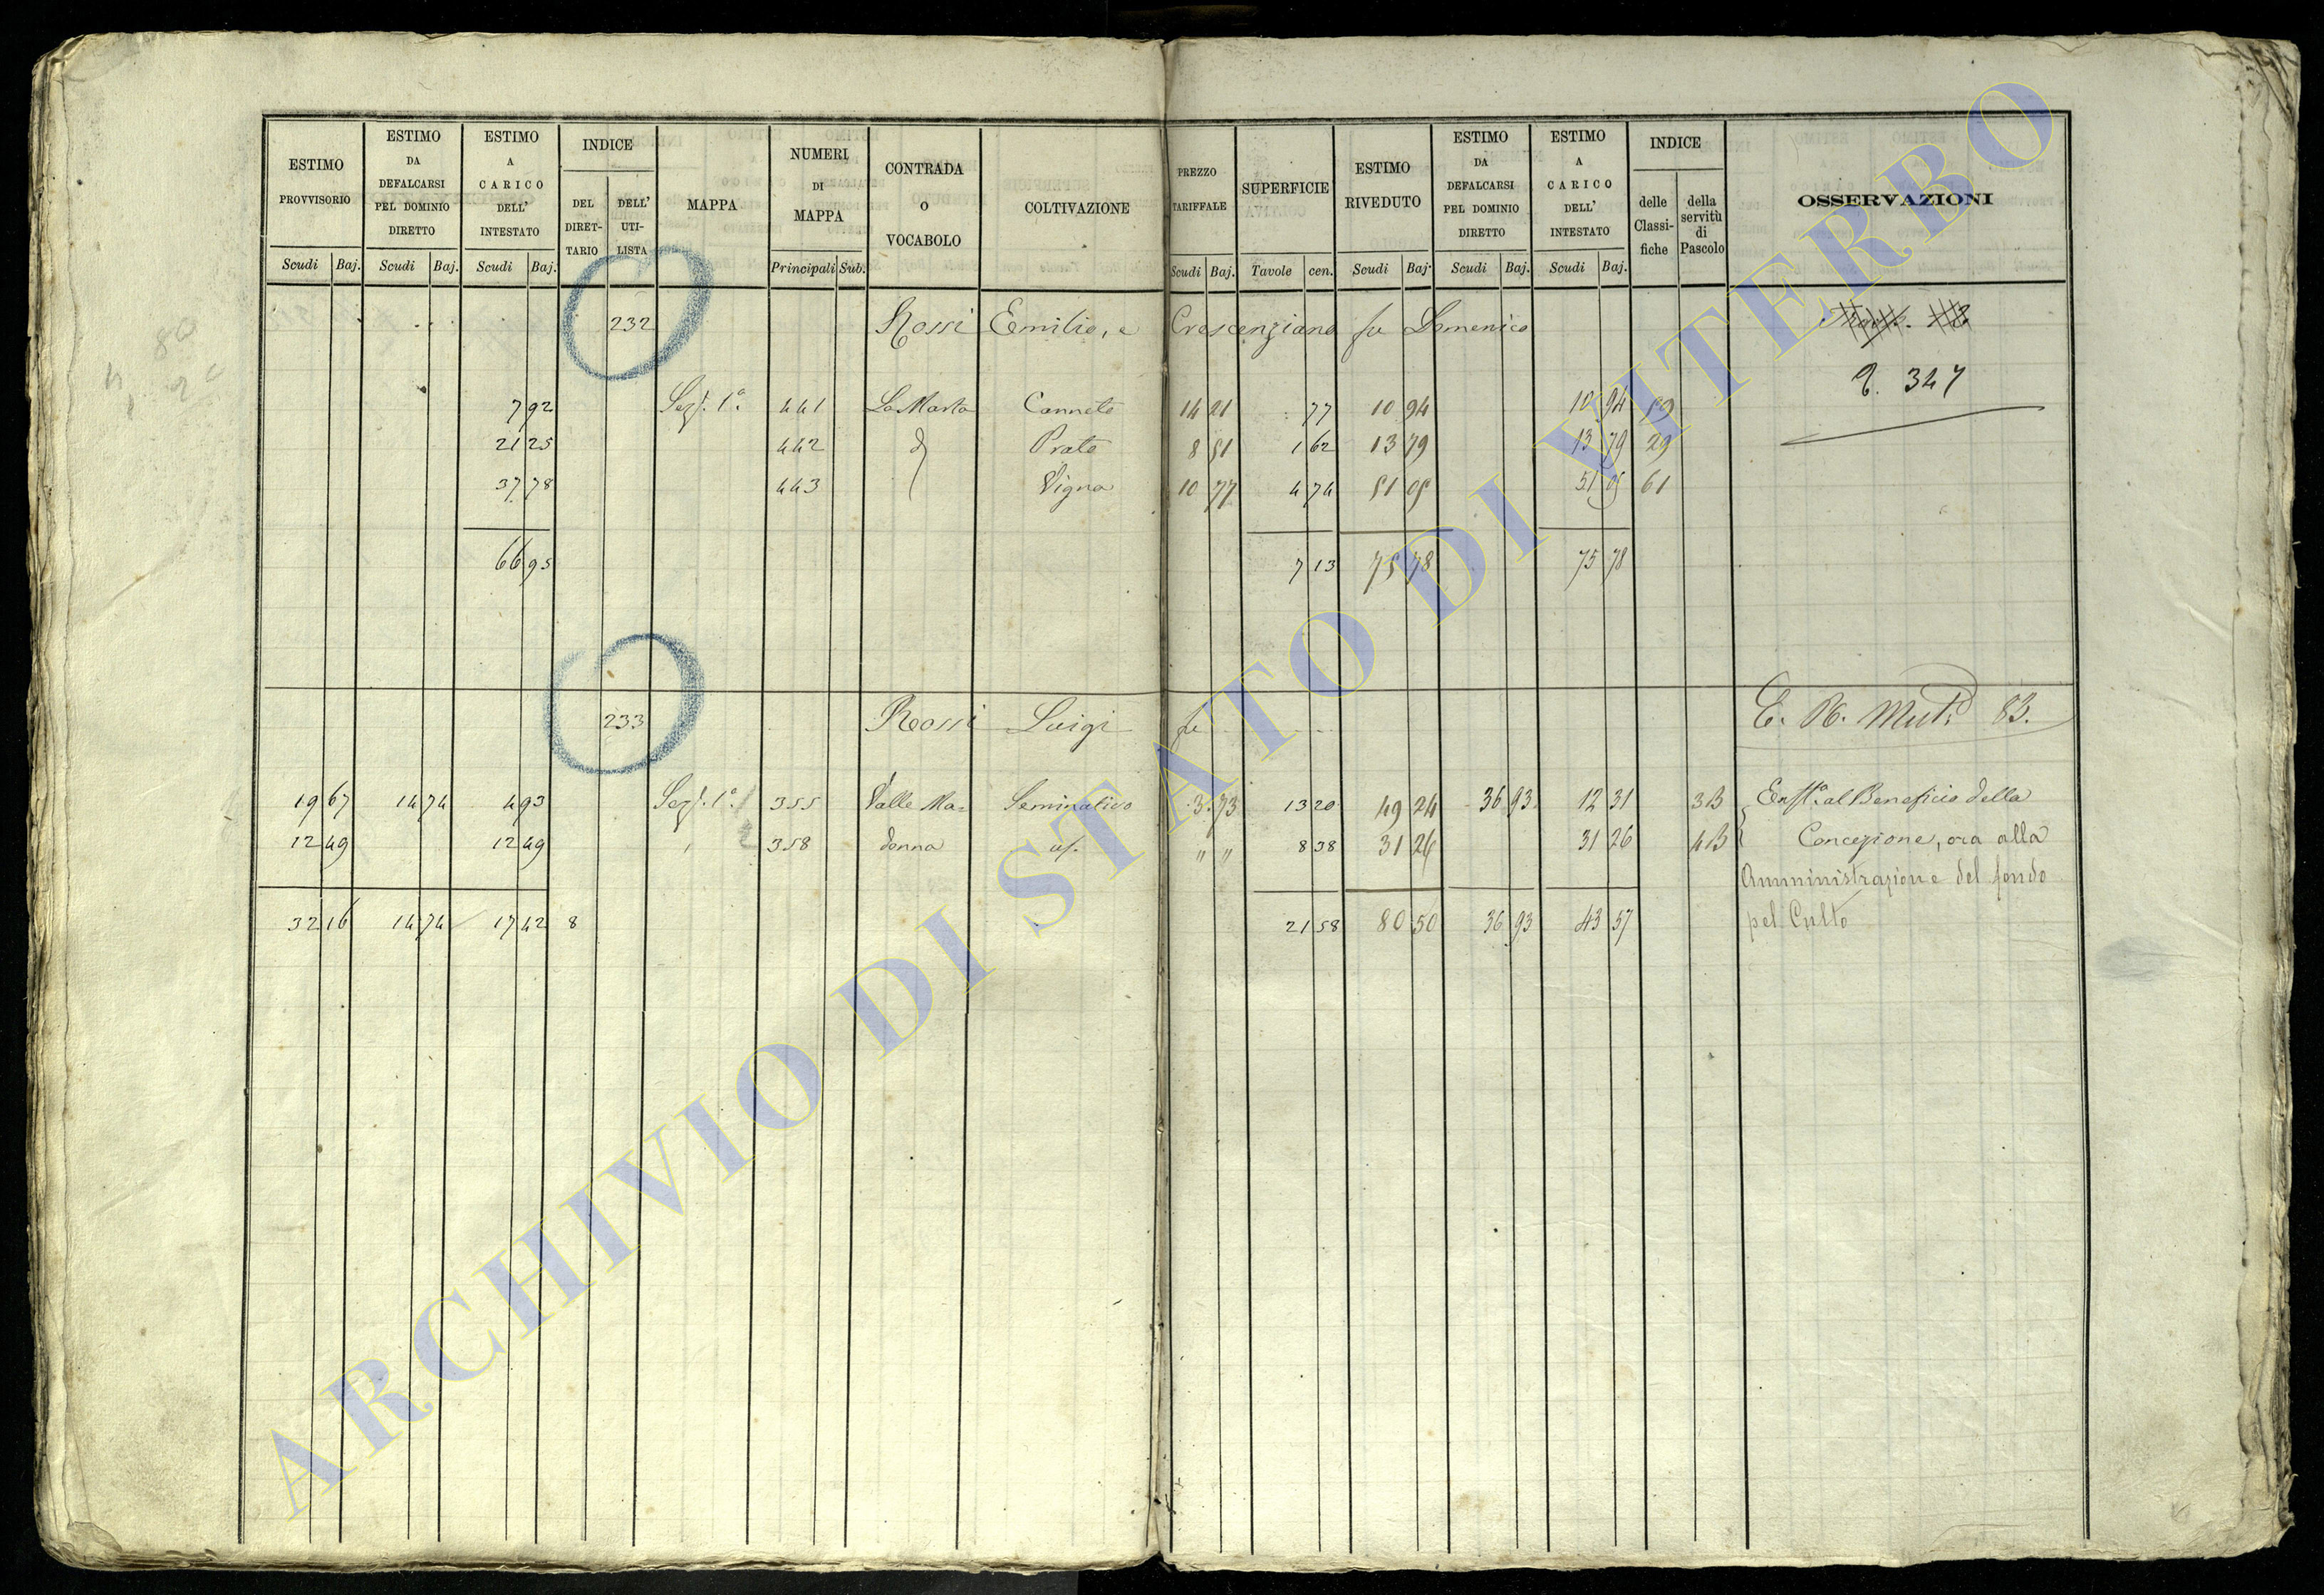 ESTIMO PROVVISORIO Scudi Baj.
ESTIMO DA DEFALCARSI PEL DOMINIO DIRETTO Scudi Baj.
ESTIMO A CARICO DELL' INTESTATO Scudi Baj.
INDICE DEL DIRET-TARIO DELL' UTI-LISTA
MAPPA
NUMERI DI MAPPA Principali Sub.
CONTRADA O VOCABOLO
COLTIVAZIONE
PREZZO TARIFFALE Scudi Baj.
SUPERFICIE Tavole cen.
ESTIMO RIVEDUTO Scudi Baj.
ESTIMO DA DEFALCARSI PEL DOMINIO DIRETTO Scudi Baj.
ESTIMO A CARICO DELL' INTESTATO Scudi Baj.
INDICE delle Classi-fiche della servitù di Pascolo
OSSERVAZIONI
232 Rossi Emilio, e Crescenziano fu Domenico
347
7 92 Sez. 1a. 441 La Marta Canneto 14 21 77 10 94 10 94 59
21 25 442 d Prato 8 51 1 62 13 79 13 79 29
37 78 443 Vigna 10 77 4 74 51 05 51 05 61
66 95 7 13 75 78 75 78
233 Rossi Luigi fu E. R. Mut. 83.
19 67 14 74 4 93 Sez. 1a. 355 Valle Ma= Seminativo 3 73 13 20 49 24 36 93 12 31 3B Enfta. al Beneficio della
12 49 12 49 358 donna id. " " 8 38 31 26 31 26 4B Concezione, ora alla
Amministrazione del fondo
32 16 14 74 17 42 8 21 58 80 50 36 93 43 57 pel Culto
ARCHIVIO DI STATO DI VITERBO